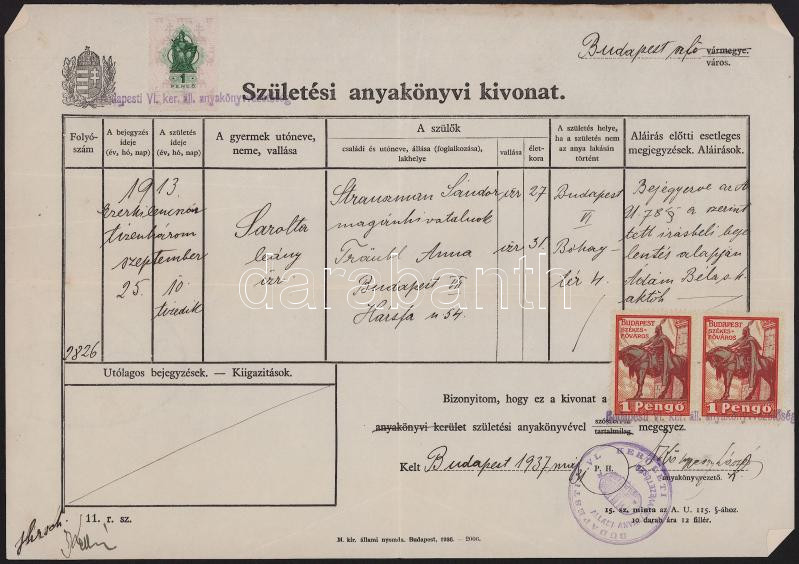 Budapest szfő vármegye.
város.
1
PENGŐ
Budapesti VI. ker. áll. anyakönyvvezetőség
Születési anyakönyvi kivonat.
Folyó-
szám
A bejegyzés
ideje
(év, hó, nap)
A születés
ideje
(év, hó, nap)
A gyermek utóneve,
neme, vallása
A szülők
családi és utóneve, állása (foglalkozása),
lakhelye
vallása
élet-
kora
A születés helye,
ha a születés nem
az anya lakásán
történt
Aláírás előtti esetleges
megjegyzések. Aláírások.
1913.
ezerkilencszáz
tizenhárom
szeptember
25. 10
tizedik
9826
Sarolta
leány
izr
Strauszman Sándor izr 27
magánhivatalnok
Träubl Anna izr 31.
Budapest VII
Hársfa u 54.
Budapest
VI
tér 4.
Bejegyezve az A
U. 78 § a szerint
tett írásbeli beje
lentés alapján
Ádám Béla s. k.
darabanth
darabanth.com
BUDAPEST
SZÉKES-
FŐVÁROS
1 Pengő
BUDAPEST
SZÉKES-
FŐVÁROS
1 Pengő
Utólagos bejegyzések. — Kiigazitások.
Bizonyitom, hogy ez a kivonat a
Budapesti VI. ker. áll. anyakönyvvezetőség
anyakönyvi kerület születési anyakönyvével szószerint
tartalmilag megegyez.
Kelt Budapest 1937
P. H.
anyakönyvvezető.
BUDAPESTI VI. KERÜLETI
11. r. sz.
15. sz. minta az A. U. 115. §-ához.
10 darab ára 12 fillér.
M. kir. állami nyomda. Budapest, 1936. — 2006.